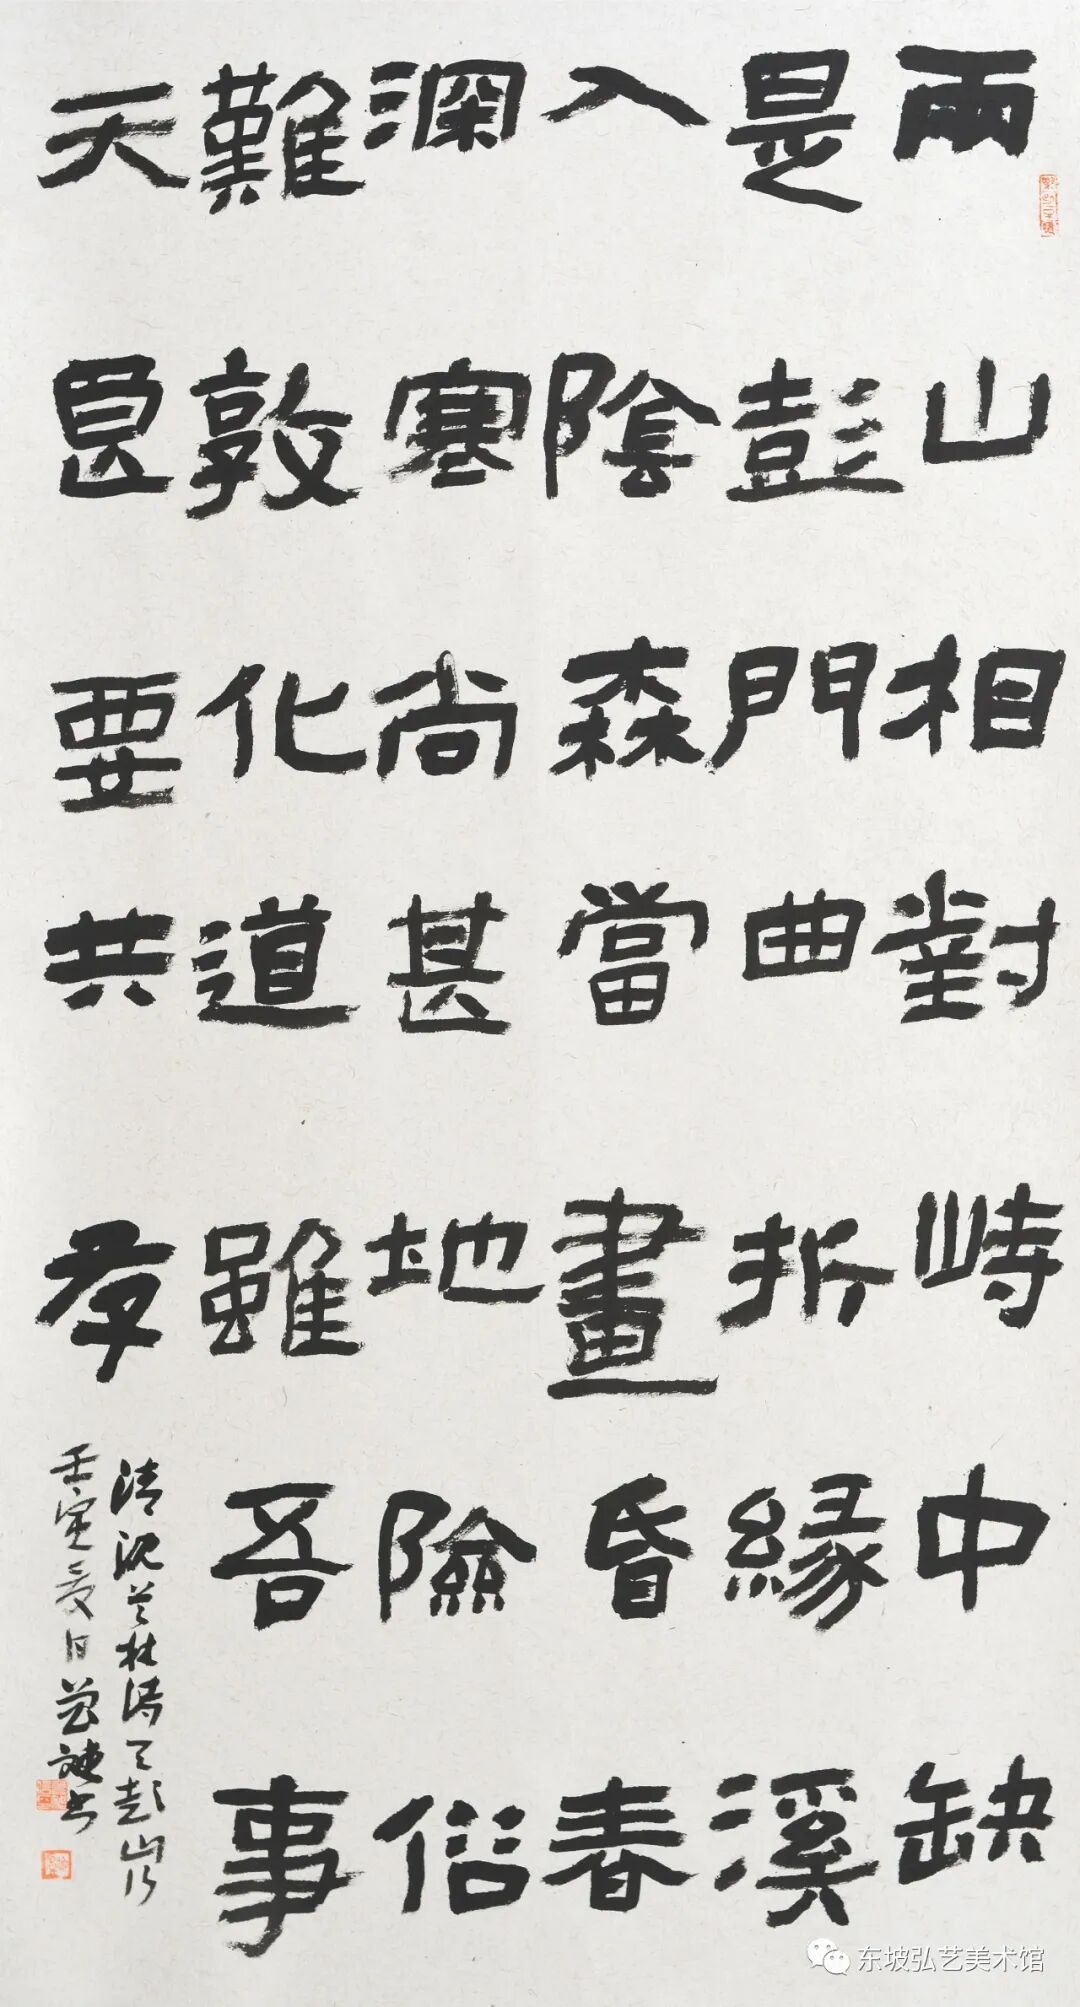 兩山相對峙中缺
是彭門曲折緣溪
入陰森當晝昏春
深寒尚甚地險俗
難敦化道雖吾事
天良要共存
清沈芝林詩天彭山行
壬寅夏月
东坡弘艺美术馆